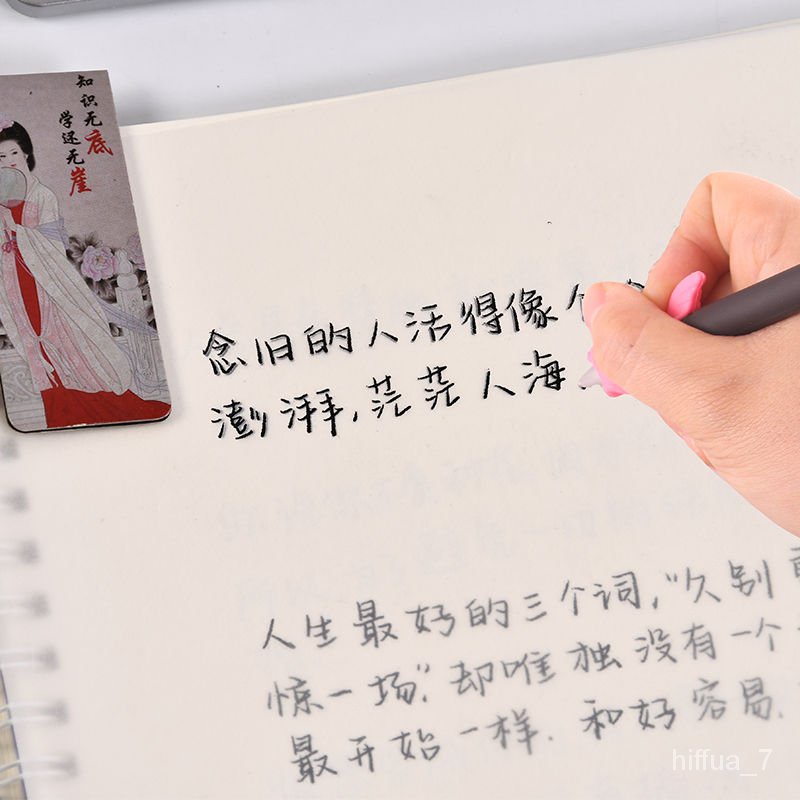 知识无底
学还无崖
念旧的人活得像个
澎湃,茫茫人海
人生最好的三个词,"久别
惊一场."却唯独没有一个
最开始一样.和好容易.
hiffua_7